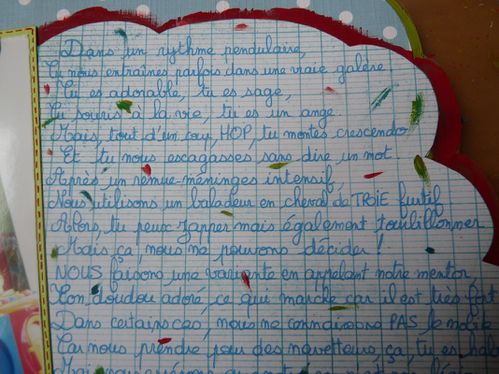 Dans un rythme pendulaire,
Tu nous entraînes parfois dans une vraie galère.
Tu es adorable, tu es sage,
Tu souris à la vie, tu es un ange.
Mais, tout d'un coup, HOP, tu montes crescendo
Et tu nous escagasses sans dire un mot.
Après un remue-méninges intensif,
Nous utilisons un baladeur en cheval de TROIE furtif
Alors, tu peux japper mais également toubillonner
Mais ça, nous ne pouvons décider !
NOUS faisons une variante en appelant notre mentor
Ton doudou adoré, ce qui marche car il est très fort
Dans certains cas, nous ne connaissons PAS le
Car nous prendre pour des navetteurs, ça, tu es